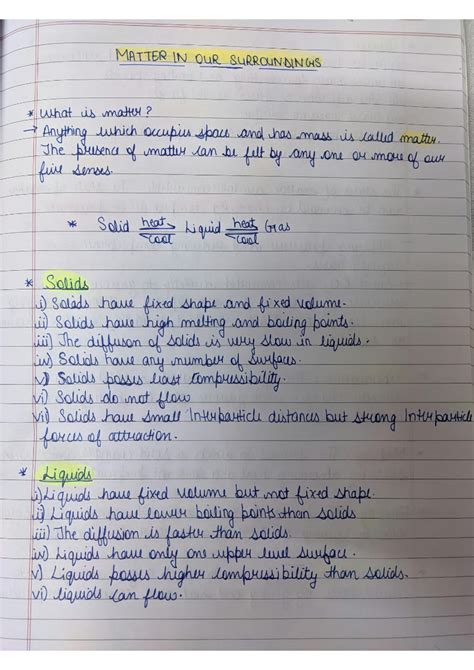 MATTER IN OUR SURROUNDINGS
* What is matter?
→ Anything which occupies space and has mass is called matter.
The presence of matter can be felt by any one or more of our
five senses.
* Solid heat/cool Liquid heat/cool Gas
* Solids
i) Solids have fixed shape and fixed volume.
ii) Solids have high melting and boiling points.
iii) The diffuson of solids is very slow in liquids.
iv) Solids have any number of surfaces.
v) Solids posses least compressibility.
vi) Solids do not flow
vii) Solids have small Interparticle distances but strong Interparticle
forces of attraction.
* Liquids
i) Liquids have fixed volume but not fixed shape.
ii) Liquids have lower boiling points than solids
iii) The diffusion is faster than solids.
iv) Liquids have only one upper level surface.
v) Liquids posses higher compressibility than solids.
vi) liquids can flow.